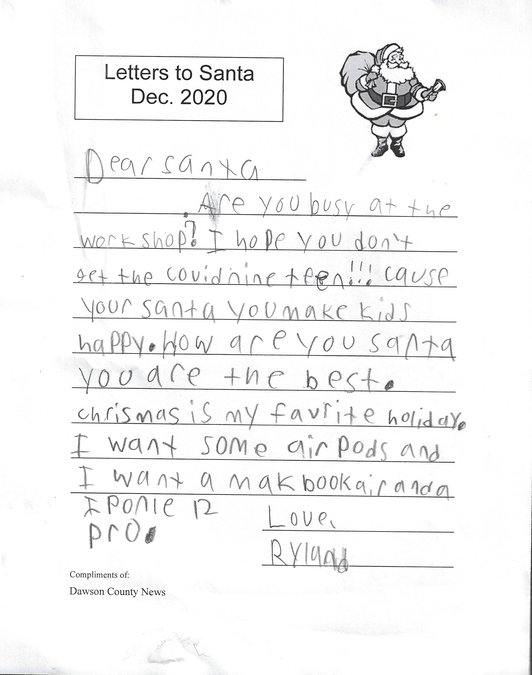 Letters to Santa
Dec. 2020
Dear santa
Are you busy at the
workshop? I hope you don't
get the covid nine teen!!! cause
your santa you make kids
happy. How are you santa
you are the best.
chrismas is my favrite holiday.
I want some air Pods and
I want a mak book air and a
I PONIE 12
pro.
Love,
Ryland
Compliments of:
Dawson County News